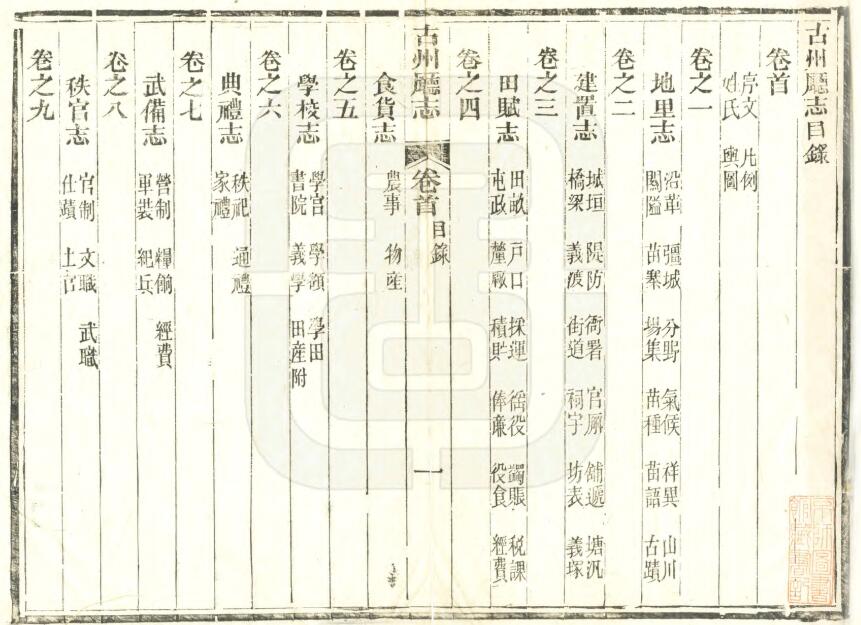 古州廳志目錄
卷首
序文 凡例
姓氏 輿圖
卷之一
地里志
沿革 疆域 分野 氣候 祥異 山川
關隘 苗寨 場集 苗種 苗語 古蹟
卷之二
建置志
城垣 隄防 衙署 官廨 舖遞 塘汛
橋梁 義渡 街道 祠宇 坊表 義塚
卷之三
田賦志
田畝 戶口 採運 徭役 蠲賑 稅課
屯政 釐廠 積貯 俸廉 役食 經費
卷之四
古州廳志
卷首
目錄
一
食貨志
農事 物產
卷之五
學校志
學宫 學額 學田
書院 義學 田産附
卷之六
典禮志
秩祀 通禮
家禮
卷之七
武備志
營制 糧餉 經費
軍裝 紀兵
卷之八
秩官志
官制 文職 武職
仕蹟 土官
卷之九